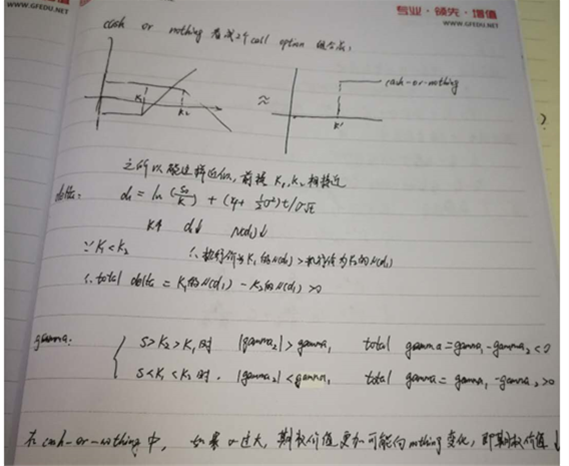 www.GFEDU.NET
专业·领先·增值
www.GFEDU.NET
cash or nothing 看成2个call option 组合成:
K₁ K₂ ≈ K' cash-or-nothing
之所以能这样近似,前提K₁,K₂相接近
delta: d₁ = ln(S₀/K) + (r+½σ²)t/σ√t
K↑ d₁↓ N(d₁)↓
∵K₁<K₂ ∴执行价为K₁的N(d₁)>执行价为K₂的N(d₁)
∴total delta = K₁的N(d₁) - K₂的N(d₁) >0
gamma:
S>K₂>K₁时 |gamma₂|>gamma₁ total gamma=gamma₁-gamma₂<0
S<K₁<K₂时. |gamma₂|<gamma₁ total gamma=gamma₁-gamma₂>0
在cash-or-nothing中, 如果σ过大,期权价值更加可能向nothing变化,即期权价值↓